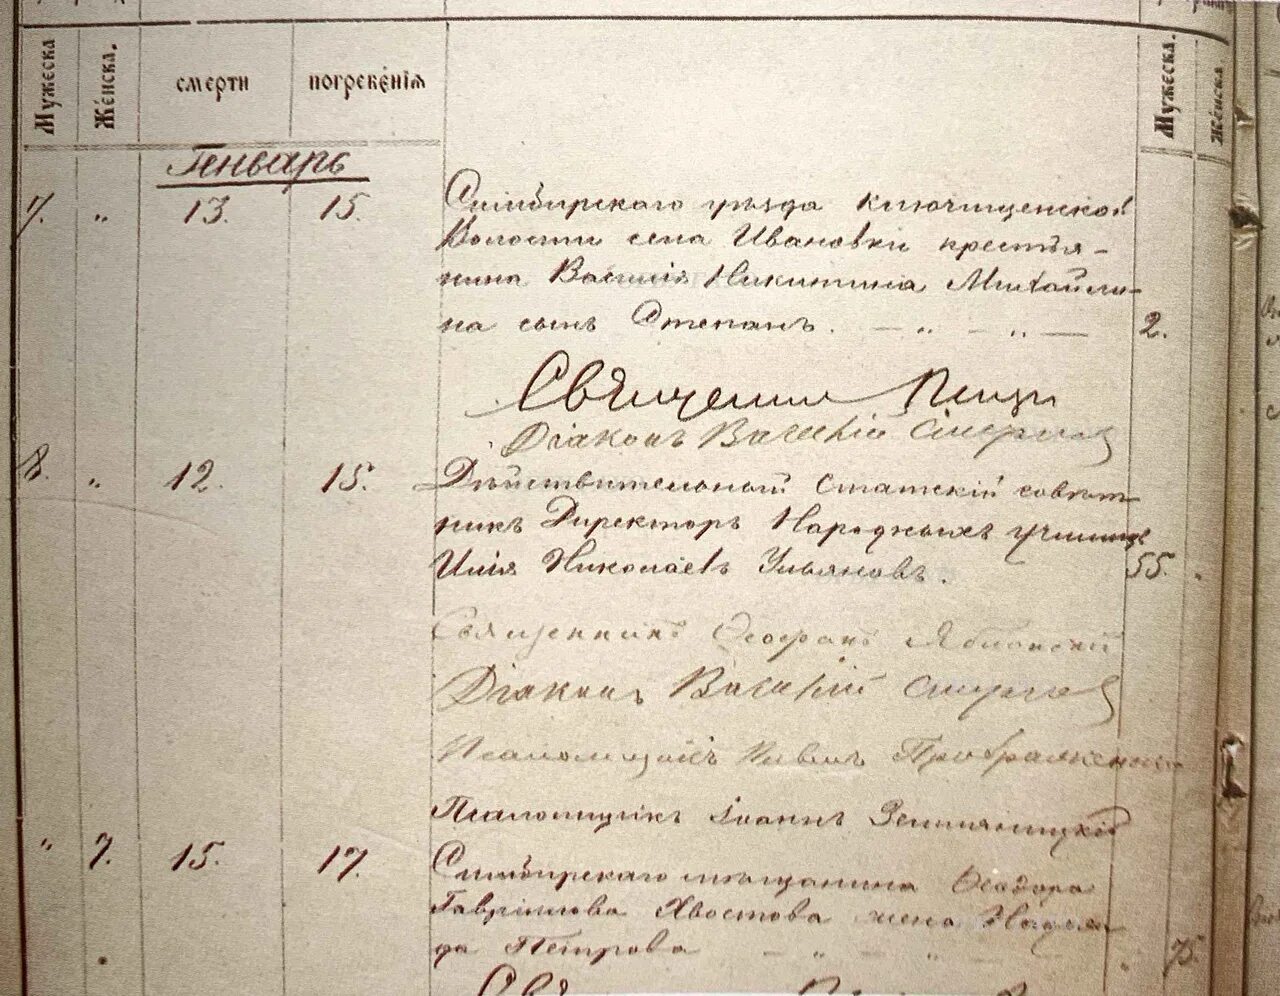 Мужеска
Женска.
смерти
погребенія
Мужеска.
Женска
Генварь
7. „ 13. 15. Симбирскаго уѣзда Ключищенской
Волости села Ивановки крестья-
нина Василія Никитина Михайли-
на сынъ Степанъ. — „ — „ — 2.
Священни
Діаконъ Василій
8. „ 12. 15. Дѣйствительный Статскій совѣт-
никъ Директоръ Народныхъ училищъ
Илія Николаевъ Ульяновъ. 55.
Священникъ Ѳеофанъ Яблонскій
Діаконъ Василій
Псаломщикъ
Псаломщикъ Іоаннъ Земляницкій
„ 7. 15. 17. Симбирскаго мѣщанина Ѳеодора
Гаврилова Хвостова жена Надеж-
да Петрова — „ — „ — „ 75.